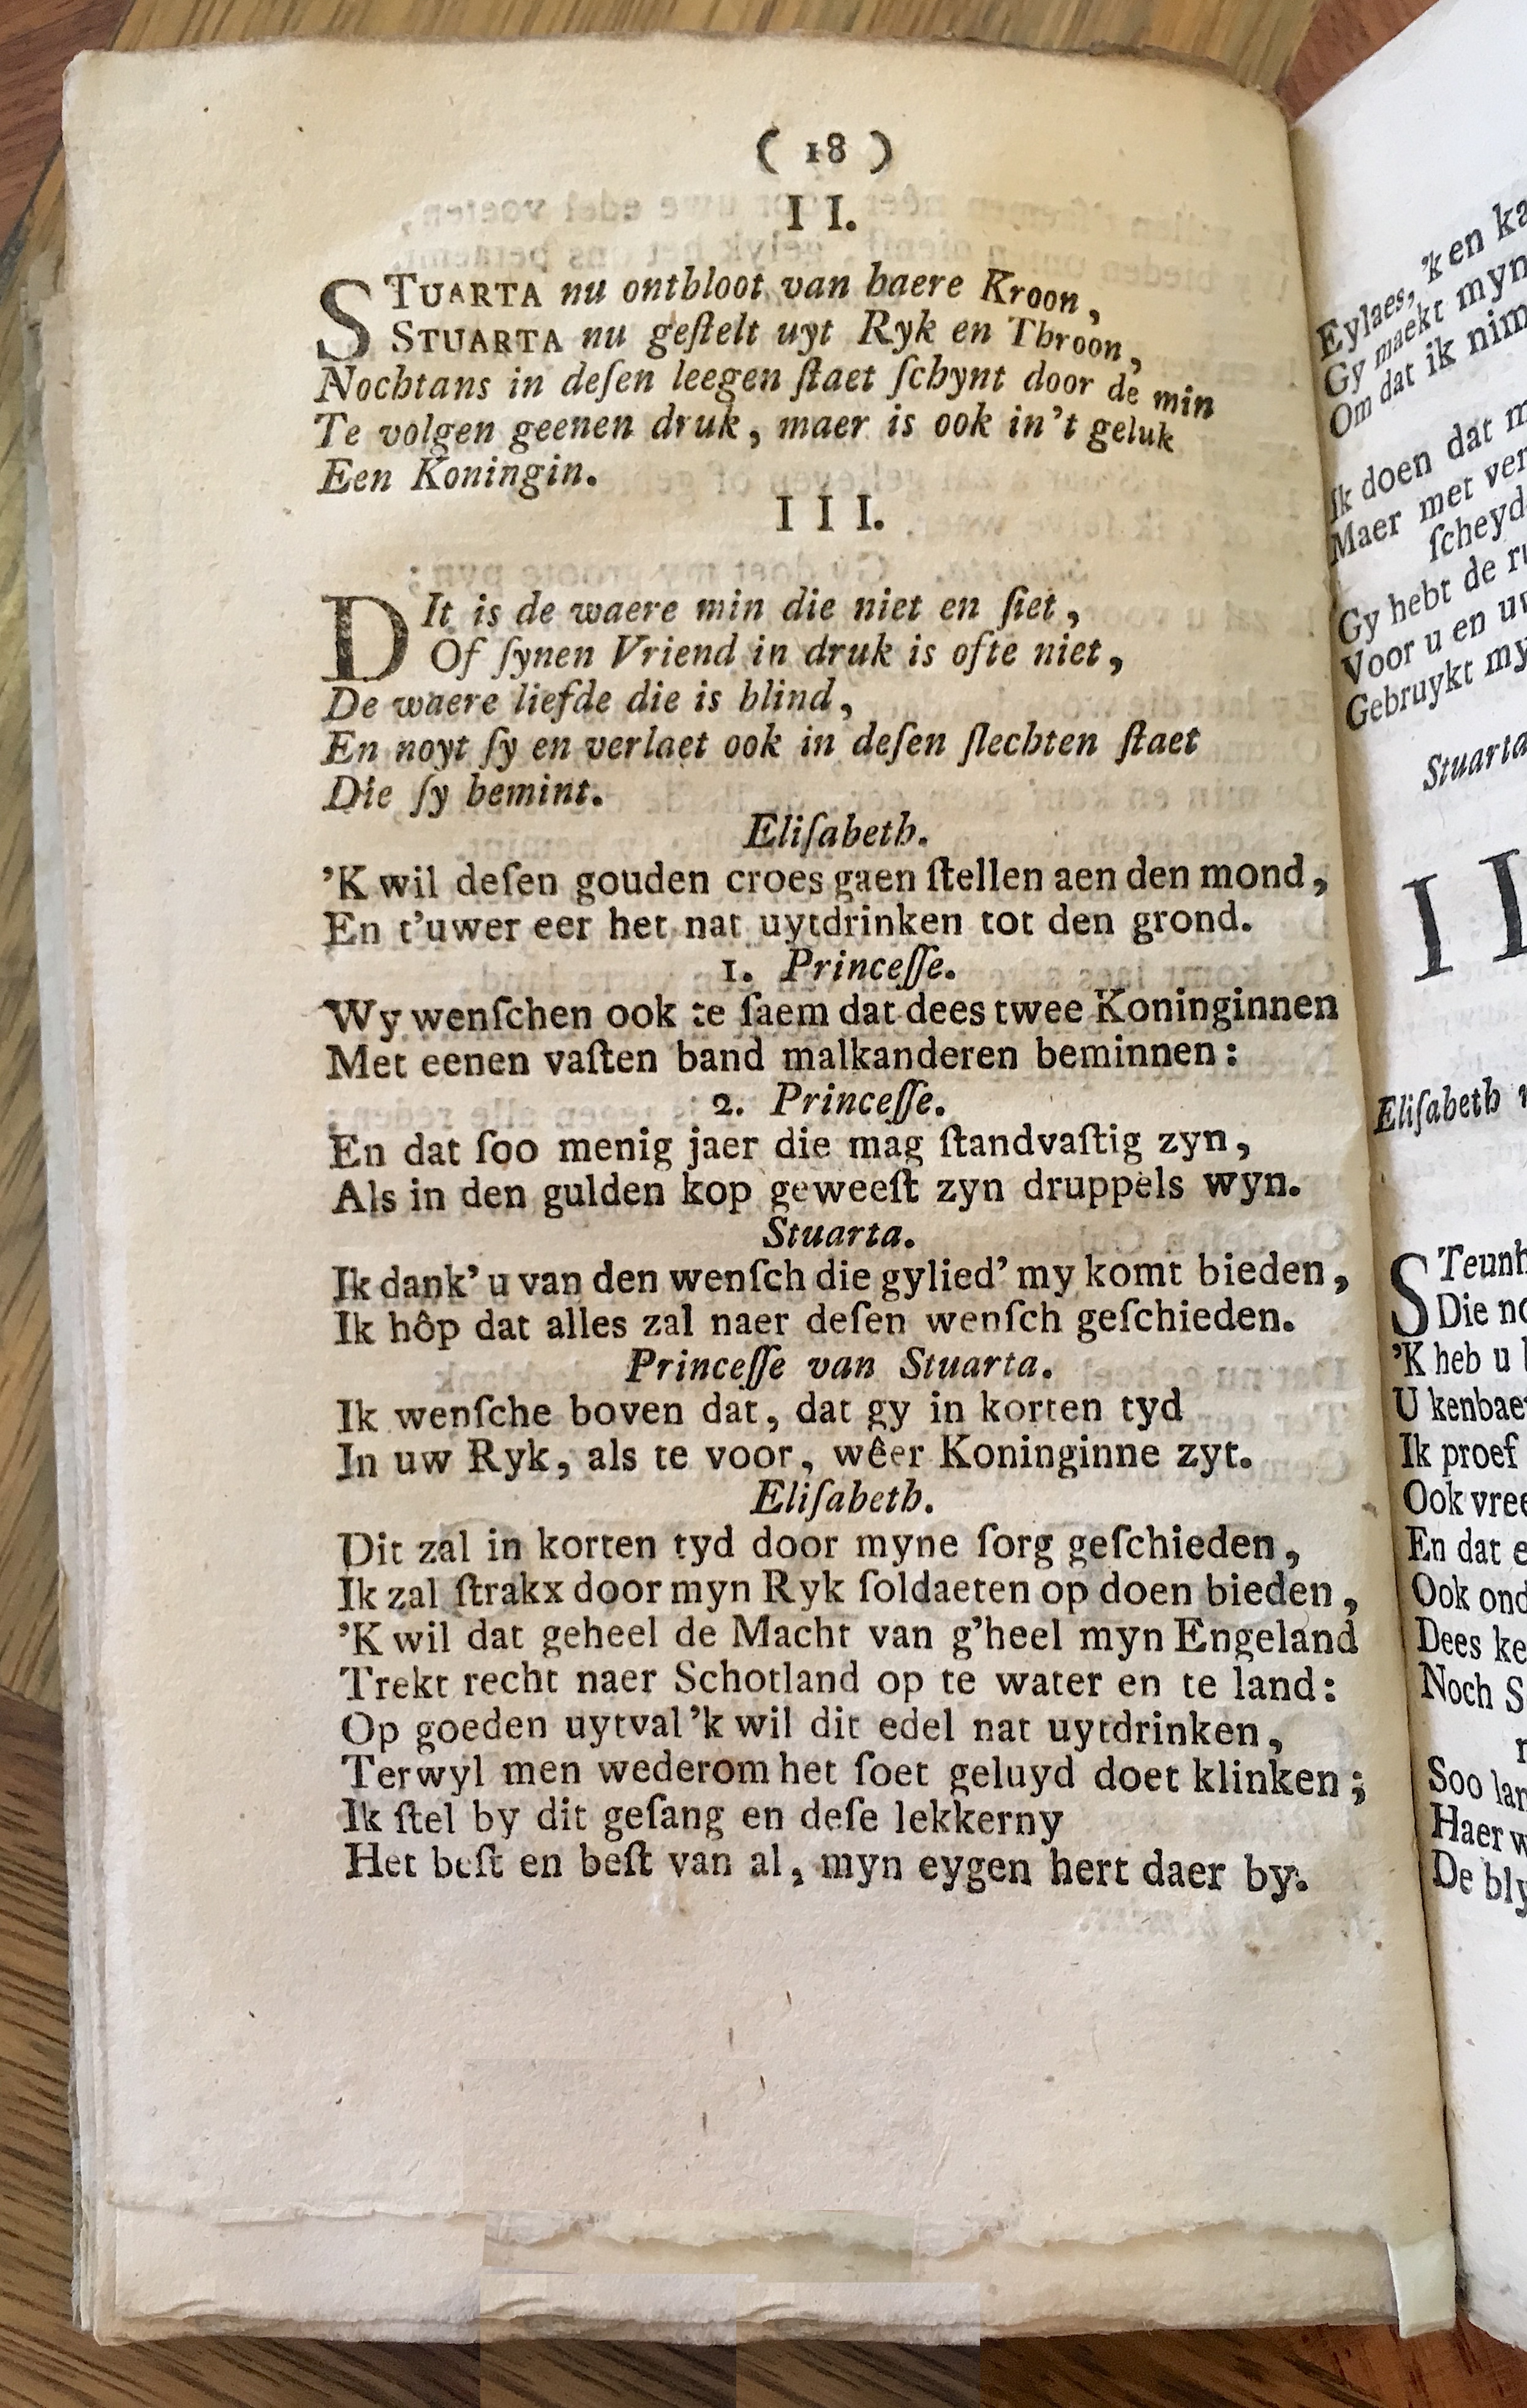 ( 18 )
II.
STUARTA nu ontbloot van haere Kroon,
STUARTA nu geſtelt uyt Ryk en Throon,
Nochtans in deſen leegen ſtaet ſchynt door de min
Te volgen geenen druk, maer is ook in't geluk
Een Koningin.
III.
DIt is de waere min die niet en ſiet,
Of ſynen Vriend in druk is ofte niet,
De waere liefde die is blind,
En noyt ſy en verlaet ook in deſen ſlechten ſtaet
Die ſy bemint.
Eliſabeth.
'K wil deſen gouden croes gaen ſtellen aen den mond,
En t'uwer eer het nat uytdrinken tot den grond.
1. Princeſſe.
Wy wenſchen ook te ſaem dat dees twee Koninginnen
Met eenen vaſten band malkanderen beminnen:
2. Princeſſe.
En dat ſoo menig jaer die mag ſtandvaſtig zyn,
Als in den gulden kop geweeſt zyn druppels wyn.
Stuarta.
Ik dank' u van den wenſch die gylied' my komt bieden,
Ik hôp dat alles zal naer deſen wenſch geſchieden.
Princeſſe van Stuarta.
Ik wenſche boven dat, dat gy in korten tyd
In uw Ryk, als te voor, wêer Koninginne zyt.
Eliſabeth.
Dit zal in korten tyd door myne ſorg geſchieden,
Ik zal ſtrakx door myn Ryk ſoldaeten op doen bieden,
'K wil dat geheel de Macht van g'heel myn Engeland
Trekt recht naer Schotland op te water en te land:
Op goeden uytval 'k wil dit edel nat uytdrinken,
Terwyl men wederom het ſoet geluyd doet klinken;
Ik ſtel by dit geſang en deſe lekkerny
Het beſt en beſt van al, myn eygen hert daer by.
Eylaes, 'k en
Gy maekt myn
Om dat ik
Ik doen dat
Maer met
Gy hebt de
Voor u en
Gebruykt
Stuarta
Eliſabeth
Die
'K heb u
U
Ik proef
Ook
En dat
Ook
Dees
Noch
Soo
Haer
De